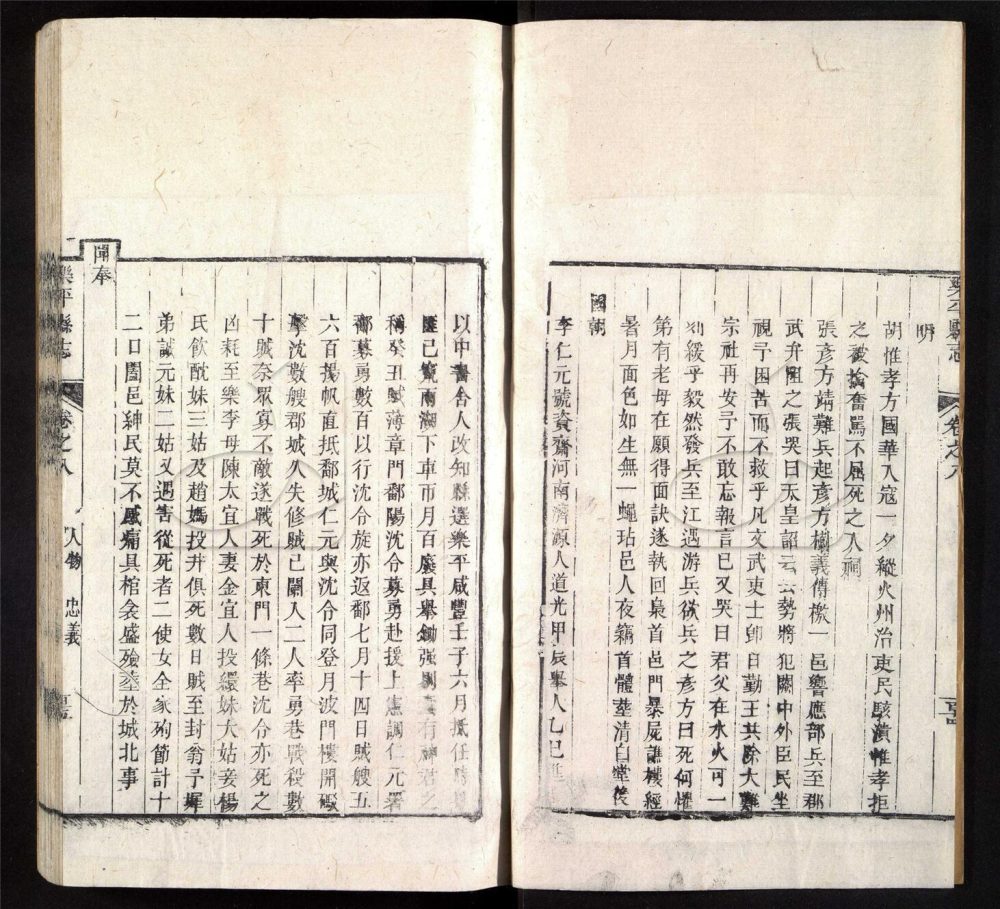 樂平縣志
卷之八
明
胡惟孝方國華入寇一夕縱火州治吏民駭潰惟孝拒
之被擒奮罵不屈死之入祠
張彥方靖難兵起彥方檄義傳檄一邑響應部兵至郡
武弁阻之張哭曰天皇詔云云勢將犯闕中外臣民坐
視予困苦而不救乎凡文武吏士卽日勤王共除大難
宗社再安予不敢忘報言已又哭曰君父在水火可一
刻緩乎毅然發兵至江遇游兵欲兵之彥方曰死何懼
第有老母在願得面訣遂執回梟首邑門暴屍譙樓經
暑月面色如生無一蠅玷邑人夜竊首體塟清白堂後
國朝
李仁元號資齋河南濟源人道光甲辰舉人乙巳進
以中書舍人改知縣選樂平咸豐壬子六月抵任時
匪已竄南湖下車市月百廢具舉鋤强有神君
稱癸丑賊薄章門鄱陽沈令募勇赴援上憲調仁元署
鄱募勇數百以行沈令旋亦返鄱七月十四日賊艘五
六百揚帆直抵鄱城仁元與沈令同登月波門樓開礮
擊沈數艘郡城久失修賊已闌入二人率勇巷戰殺數
十賊奈眾寡不敵遂戰死於東門一條巷沈令亦死之
凶耗至樂李母陳太宜人妻金宜人投繯妹大姑妾楊
氏飲酖妹三姑及趙媽投井俱死數日賊至封翁予墀
弟誠元妹二姑又遇害從死者二使女全家殉節計十
二口闔邑紳民莫不感痛具棺衾盛殮塟於城北事
聞奉
樂平縣志
卷之八
人物
忠義